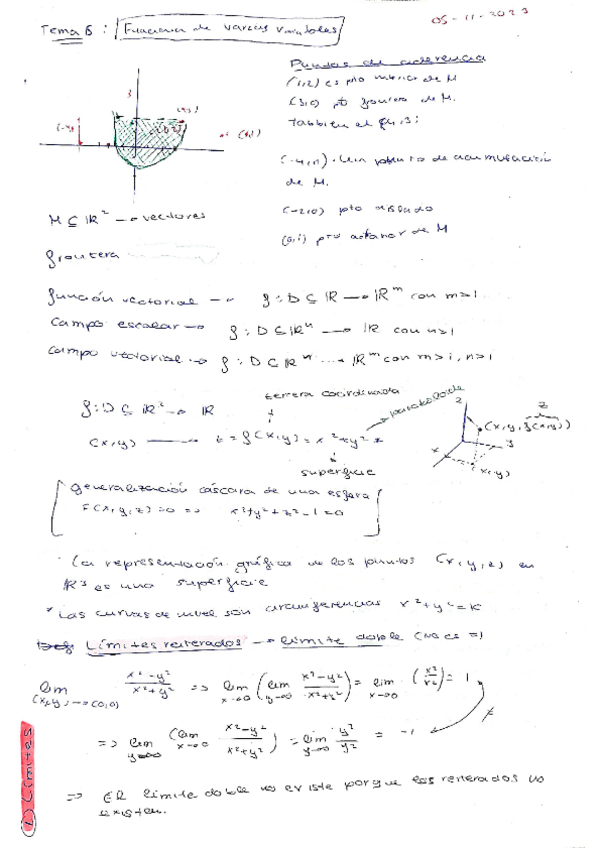 05-11-2023
Tema 6: Funciones de varias variables
Puntos de adherencia
(1,2) es pto interior de M
(3,0) pto frontera de M.
También el
(-4,1). Un punto de acumulación
de M.
(-2,0) pto aislado
pto exterior de M
M ⊆ ℝ² → vectores
frontera
función vectorial → f: D ⊆ ℝ → ℝᵐ con m>1
campo escalar → f: D ⊆ ℝⁿ → ℝ con n>1
campo vectorial → f: D ⊆ ℝⁿ → ℝᵐ con m>1, n>1
tercera coordenada
f: D ⊆ ℝ² → ℝ
(x,y) → z = f(x,y) = x²+y²
paraboloide
superficie
z
(x,y,f(x,y))
z
x
y
(x,y)
generalización cáscara de una esfera
F(x,y,z)=0 => x²+y²+z²-1=0
La representación gráfica de los puntos (x,y,z) en
ℝ³ es una superficie
* Las curvas de nivel son circunferencias x²+y²=k
Límites reiterados → límite doble (no es =)
lim (x,y)→(0,0) x²-y²/x²+y² => lim x→0 (lim y→0 x²-y²/x²+y²) = lim x→0 (x²/x²) = 1
≠
=> lim y→0 (lim x→0 x²-y²/x²+y²) = lim y→0 y²/y² = -1
=> El límite doble no existe porque los reiterados no
existen.
1) Límites